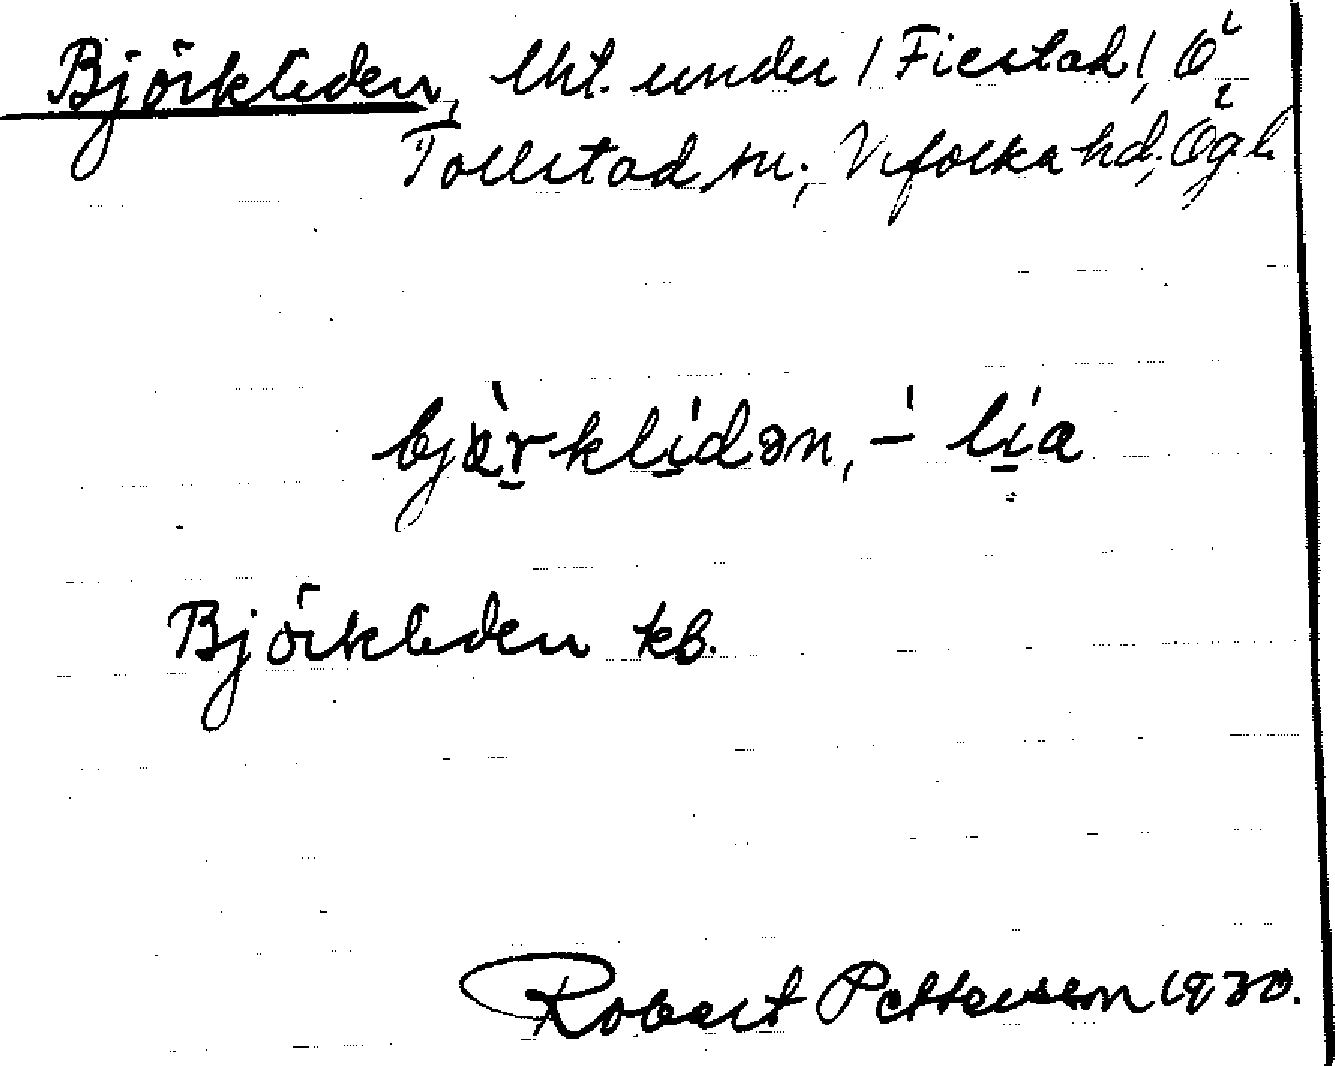 Björkliden, lht. under /Fiestad/, Ö
Tollstad sn; Vifolka hd, Ögl.
bjàrklídən, -́ lía
Björkliden kb.
Robert Pettersson 1930.